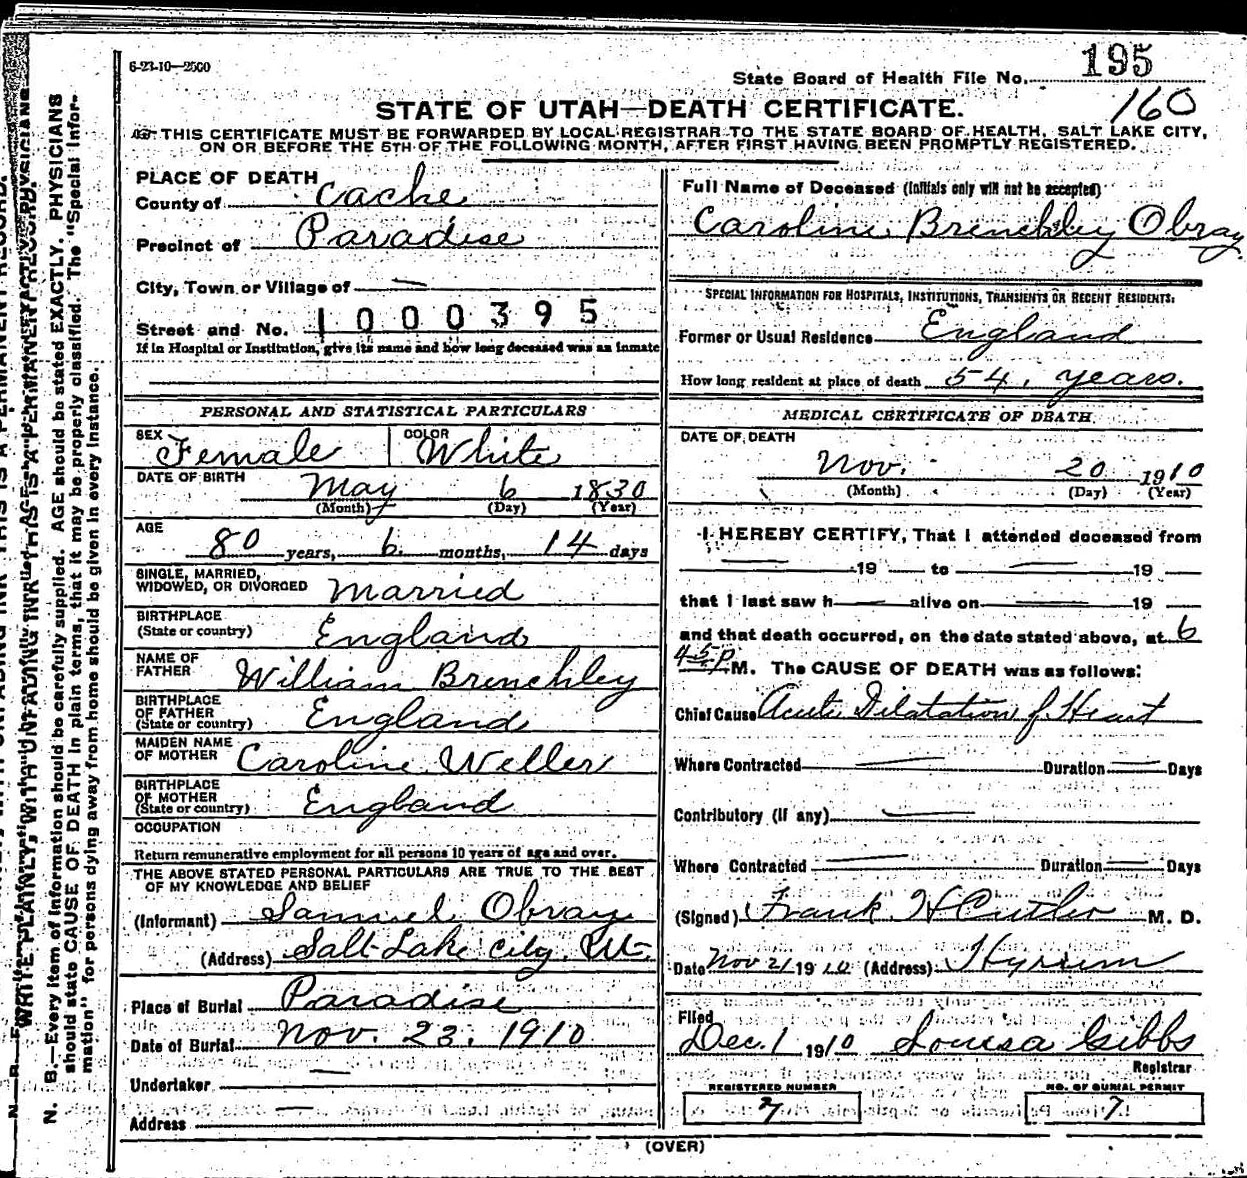 6-23-10—2500
State Board of Health File No. 195
160
STATE OF UTAH—DEATH CERTIFICATE.
THIS CERTIFICATE MUST BE FORWARDED BY LOCAL REGISTRAR TO THE STATE BOARD OF HEALTH, SALT LAKE CITY,
ON OR BEFORE THE 5TH OF THE FOLLOWING MONTH, AFTER FIRST HAVING BEEN PROMPTLY REGISTERED.
PLACE OF DEATH
County of Cache
Precinct of Paradise
City, Town or Village of —
Street and No. 1000395
If in Hospital or Institution, give its name and how long deceased was an inmate
PERSONAL AND STATISTICAL PARTICULARS
SEX Female COLOR White
DATE OF BIRTH May 6 1830
(Month) (Day) (Year)
AGE 80 years, 6 months, 14 days
SINGLE, MARRIED,
WIDOWED, OR DIVORCED Married
BIRTHPLACE
(State or country) England
NAME OF
FATHER William Brenchley
BIRTHPLACE
OF FATHER
(State or country) England
MAIDEN NAME
OF MOTHER Caroline Weller
BIRTHPLACE
OF MOTHER
(State or country) England
OCCUPATION
Return remunerative employment for all persons 10 years of age and over.
THE ABOVE STATED PERSONAL PARTICULARS ARE TRUE TO THE BEST
OF MY KNOWLEDGE AND BELIEF
(Informant) Samuel Obray
(Address) Salt Lake City, Ut.
Place of Burial Paradise
Date of Burial Nov. 23. 1910
Undertaker —
Address —
Full Name of Deceased (Initials only will not be accepted)
Caroline Brenchley Obray
SPECIAL INFORMATION FOR HOSPITALS, INSTITUTIONS, TRANSIENTS OR RECENT RESIDENTS:
Former or Usual Residence England
How long resident at place of death 54, years.
MEDICAL CERTIFICATE OF DEATH
DATE OF DEATH
Nov. 20 1910
(Month) (Day) (Year)
I HEREBY CERTIFY, That I attended deceased from
— 19 — to — 19 —
that I last saw h — alive on — 19 —
and that death occurred, on the date stated above, at 6
45 P M. The CAUSE OF DEATH was as follows:
Chief Cause Acute Dilatation of Heart
Where Contracted — Duration — Days
Contributory (if any) —
Where Contracted — Duration — Days
(Signed) Frank H Cutler M. D.
Date Nov 21 1910 (Address) Hyrum
Filed
Dec. 1 1910 Louisa Gibbs
Registrar
REGISTERED NUMBER
7
NO. OF BURIAL PERMIT
7
(OVER)
WRITE PLAINLY, WITH UNFADING INK—THIS IS A PERMANENT RECORD.
N. B.—Every item of information should be carefully supplied. AGE should be stated EXACTLY. PHYSICIANS
should state CAUSE OF DEATH in plain terms, that it may be properly classified. The "Special Infor-
mation" for persons dying away from home should be given in every instance.